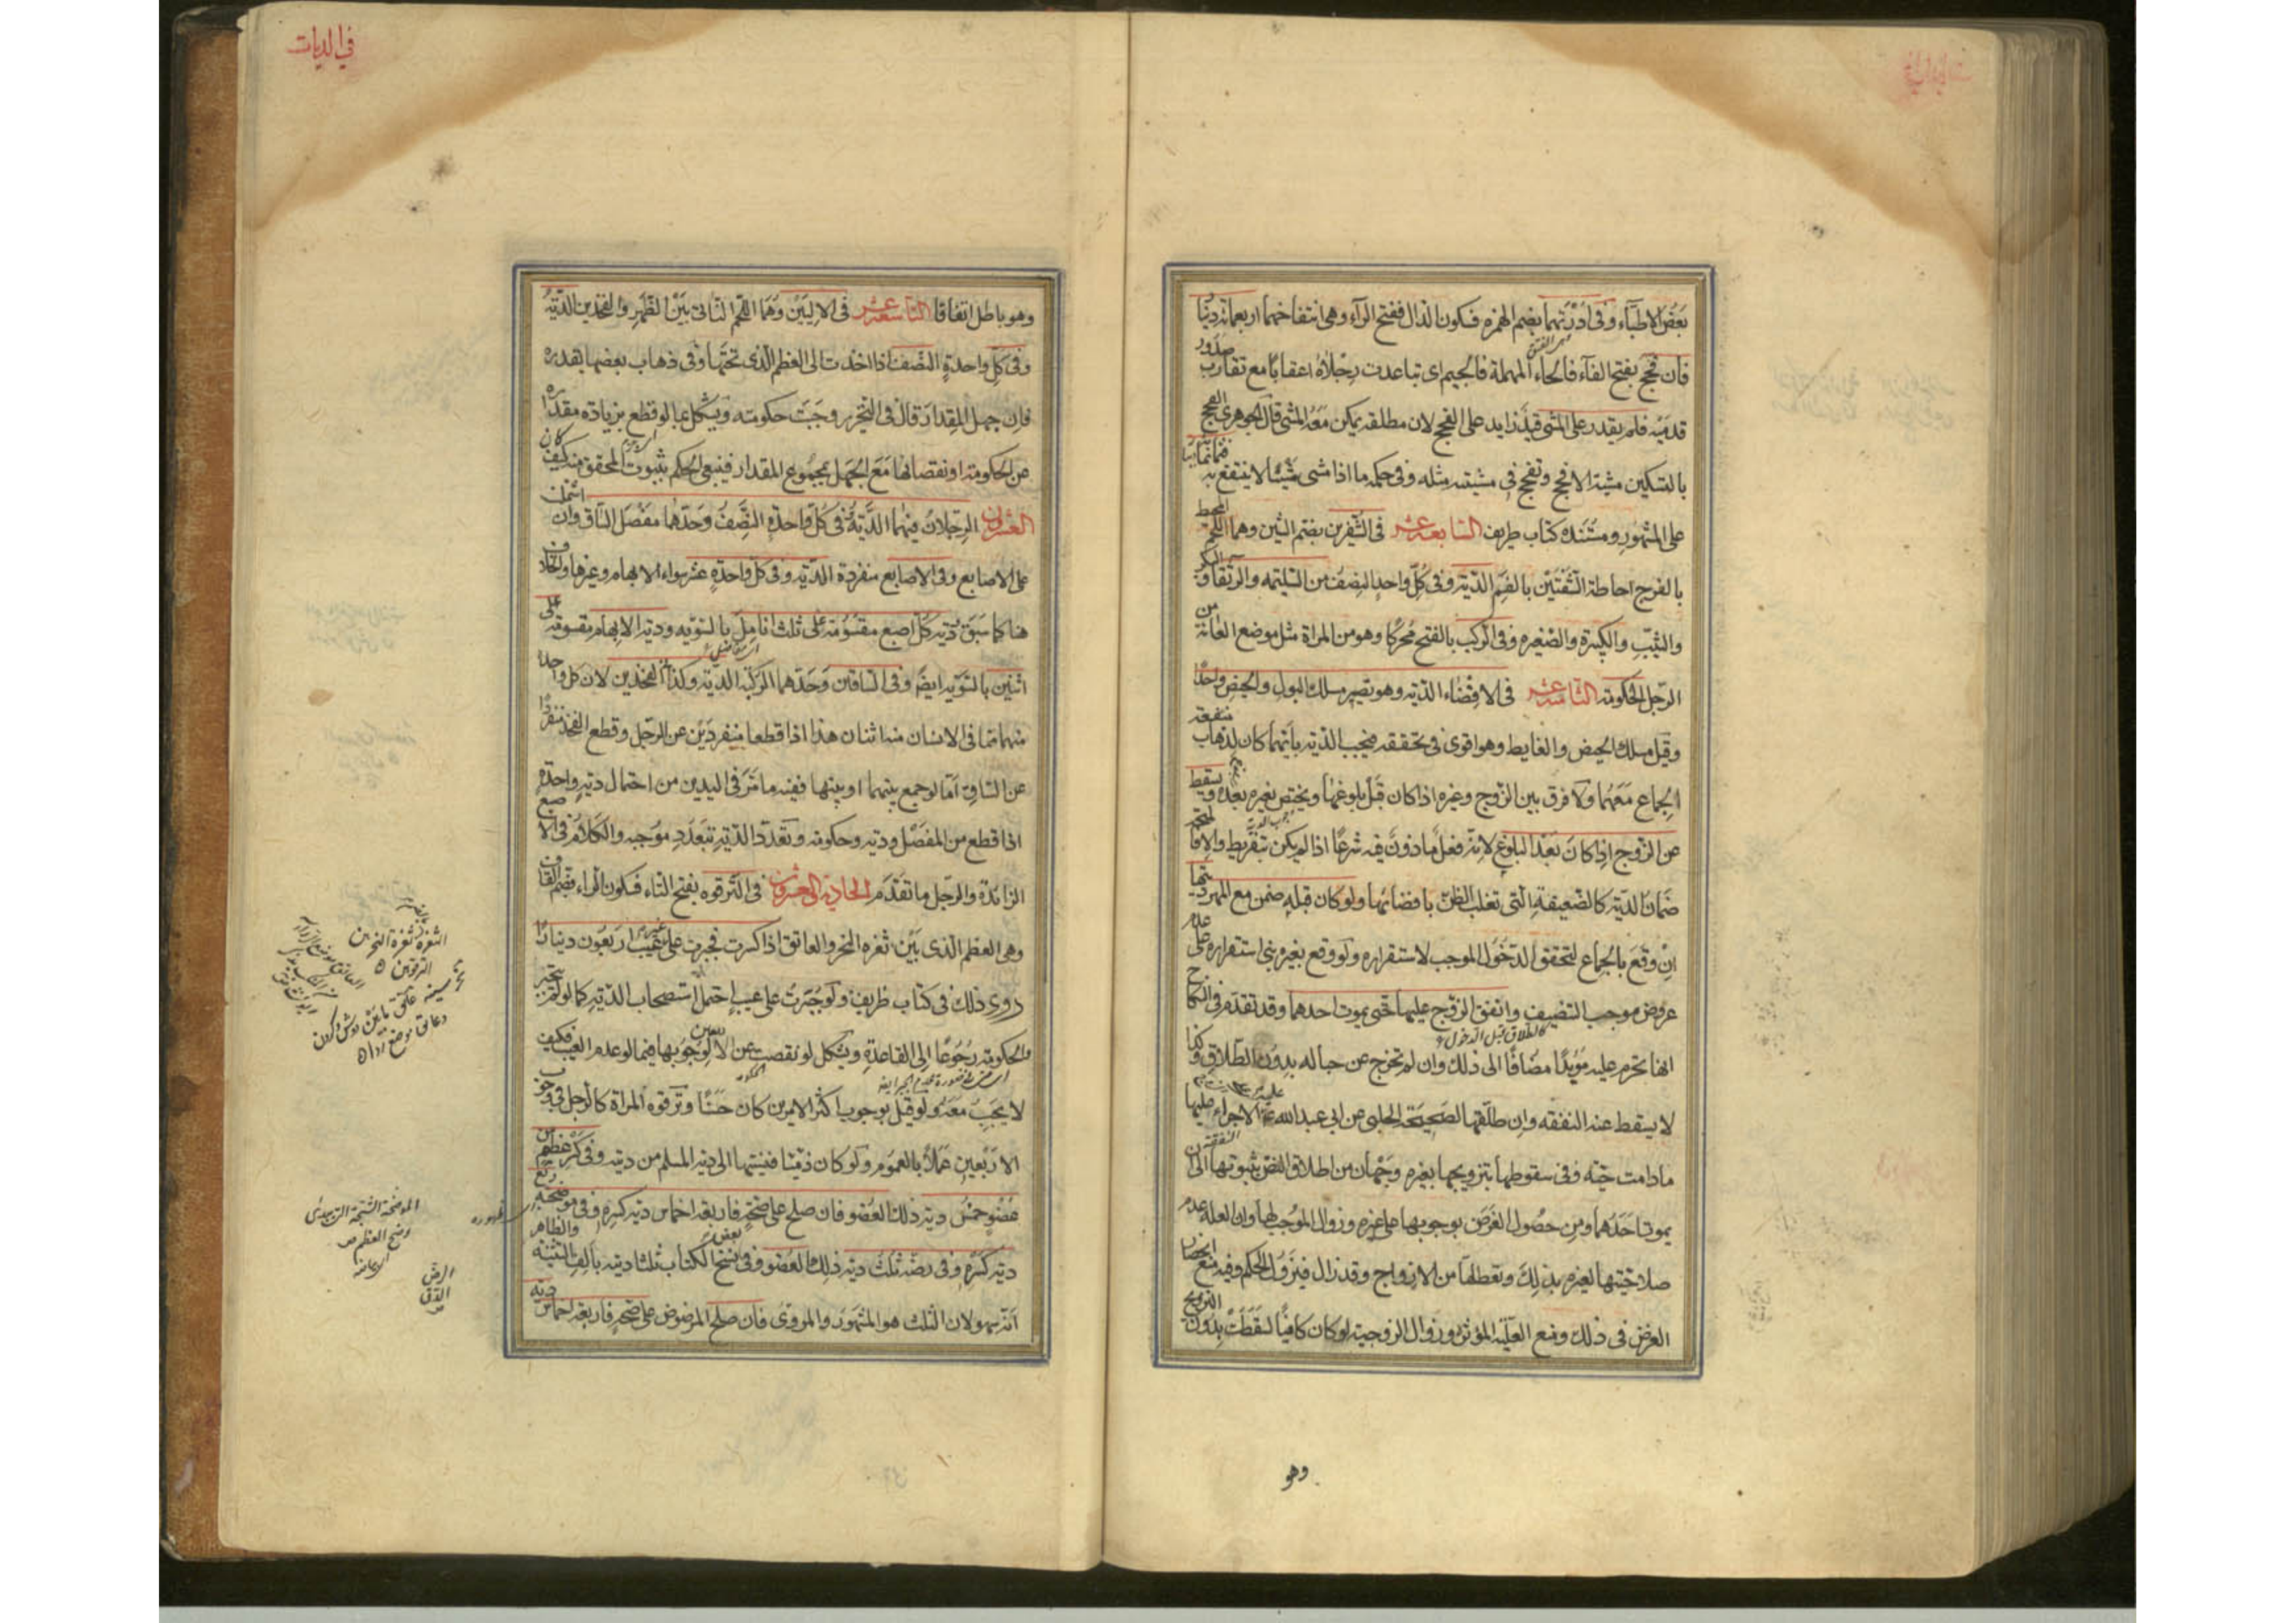 بعض الاطباء وفي ادرتهما بضم الهمزه فسكون الدال ففتح الراء وهي انتفاخهما اربعمائة دينار
فان فحج بفتح الفاء فالحاء المهملة فالجيم اى تباعدت رجلاه اعقابا مع تقارب صدور
قدميه فلم يقدر على المشى قيد زايد على الفحج لان مطلقه يمكن معه المشى قال الجوهرى الفحج
بالتسكين مشية الافحج وتفحج في مشيته مثله وفي حكمه ما اذا مشى مشيا لا ينتفع به فثمانمائة
على المشهور ومستنده كتاب ظريف السابعة عشر في الشفرين بضم الشين وهما اللحم المحيط
بالفرج احاطة الشفتين بالفم الدية وفي كل واحد النصف من السليمه والرتقاء والبكر
والثيب والكبيرة والصغيره وفي الركب بالفتح محركا وهو من المراة مثل موضع العانة من
الرجل الحكومة الثامنة عشر في الافضاء الدية وهو تصيير مسلك البول والحيض واحدا
وقيل مسلك الحيض والغايط وهو اقوى في تحققه فتجب الدية بايهما كان لذهاب منفعة
الجماع معهما ولا فرق بين الزوج وغيره اذا كان قبل بلوغها ويختص بغيره بعده ويسقط
عن الزوج اذا كان بعد البلوغ لانه فعل ماذون فيه شرعا اذا لم يكن بتفريط والا فالمتجه
ضمان الدية كالضعيفة التى تغلب الظن بافضائها ولو كان قبله ضمن مع المهر ديتها
ان وقع بالجماع لتحقق الدخول الموجب لاستقراره ولو وقع بغيره بنى استقراره على عدم
عروض موجب التنصيف وانفق الزوج عليها حتى يموت احدهما وقد تقدم في النكاح
كالطلاق قبل الدخول
انها تحرم عليه مؤبدا مضافا الى ذلك وان لم تخرج عن حباله بدون الطلاق وكذا
لا يسقط عنه النفقه وان طلقها لصحيحة الحلبى عن ابى عبد الله الاجراء عليها
ما دامت حية وفي سقوطها بتزويجها بغيره وجهان من اطلاق النص ثبوتها الى ان
يموت احدهما ومن حصول الغرض بوجوبها على غيره وزوال الموجب لها وان العلة عدم
صلاحيتها لغيره بذلك وتعطلها من الازواج وقد زال فيزول الحكم وفيه منع انحصار
الغرض في ذلك ومنع العلية المؤثرة وزوال الزوجية لو كان كافيا لسقطت بدون التزويج
وهو
في الديات
وهو باطل اتفاقا التاسعة عشر في الاليين وهما اللحم الناتى بين الظهر والفخذين الدية
وفي كل واحدة النصف اذا اخذت الى العظم الذى تحتها وفي ذهاب بعضها بقدره
فان جهل المقدار قال في التحرير وجبت حكومته ويشكل بما لو قطع بزيادة مقدارها
عن الحكومة او نقصانها مع الجهل بمجموع المقدار فينبغى الحكم بثبوت المحقق منه كيف كان
العشرون الرجلان فيهما الدية وفي كل واحدة النصف وحدهما مفصل الساق وان اشتملت
على الاصابع وفي الاصابع منفردة الدية وفي كل واحدة عشر سواء الابهام وغيرها والخلاف
هنا كما سبق ودية كل اصبع مقسومة على ثلث انامل بالسويه ودية الابهام مقسومة على
اثنين بالسوية ايضا وفي الساقين وحدهما الركبة الدية وكذا الفخذين لان كل واحدة
منهما مما في الانسان منه اثنان هذا اذا قطعا منفردين عن الرجل وقطع الفخذ منفردا
عن الساق اما لو جمع بينهما او بينها ففيه ما مر في اليدين من احتمال دية واحدة
اذا قطع من المفصل ودية وحكومة وتعدد الدية بتعدد موجبه والكلام في الاصبع
الزائدة والرجل ما تقدم الحادية والعشرون في الترقوه بفتح التاء فسكون الراء فضم القاف
وهى العظم الذى بين ثغره النحر والعاتق اذا كسرت فجبرت على غير عيب اربعون دينارا
روى ذلك في كتاب ظريف ولو جبرت على عيب احتمل استصحاب الدية كما لو لم تجبر
والحكومة رجوعا الى القاعدة ويشكل لو نقصت عن الاربعين لوجوبها فيما لو عدم العيب فكيف
لا يجب معه ولو قيل بوجوب اكثر الامرين كان حسنا وترقوه المراة كالرجل في وجوب
الاربعين عملا بالعموم ولو كان ذميا فنسبتها الى دية المسلم من ديته وفي كسر عظم من
عضو خمس دية ذلك العضو فان صلح على صحة فاربعة اخماس دية كسره وفي موضحته ربع
دية كسره وفي رضه ثلث دية ذلك العضو وفي بعض نسخ الكتاب ثلثا ديته بالف التثنية والظاهر
انه سهو لان الثلث هو المشهور والمروى فان صلح المرضوض على صحة فاربعة اخماس دية
الثغرة ثغرة النحر بين
الترقوتين
الموضحة الشجة التى تبدى
وضح العظم
الرض
الدق